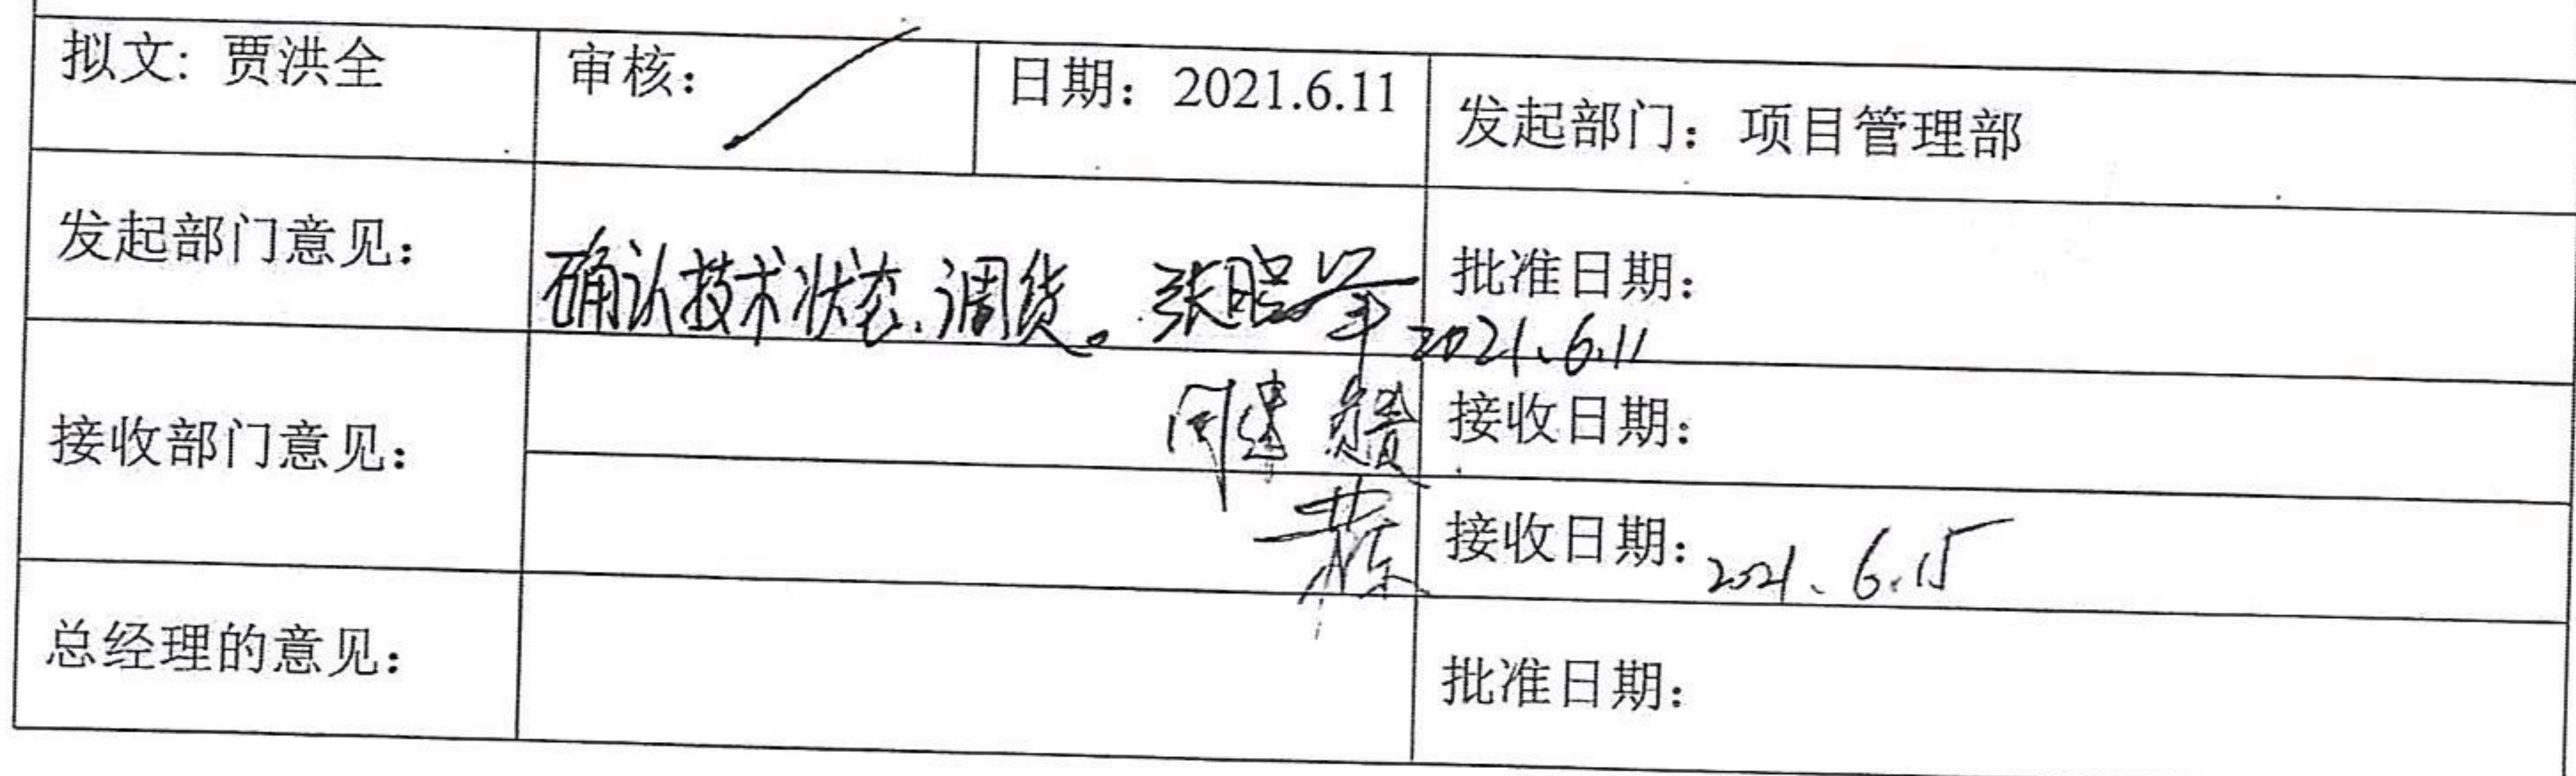 拟文: 贾洪全 审核： 日期：2021.6.11 发起部门：项目管理部
发起部门意见： 确认技术状态、调货。 批准日期：
2021.6.11
接收部门意见： 接收日期：
接收日期：2021.6.15
总经理的意见： 批准日期：